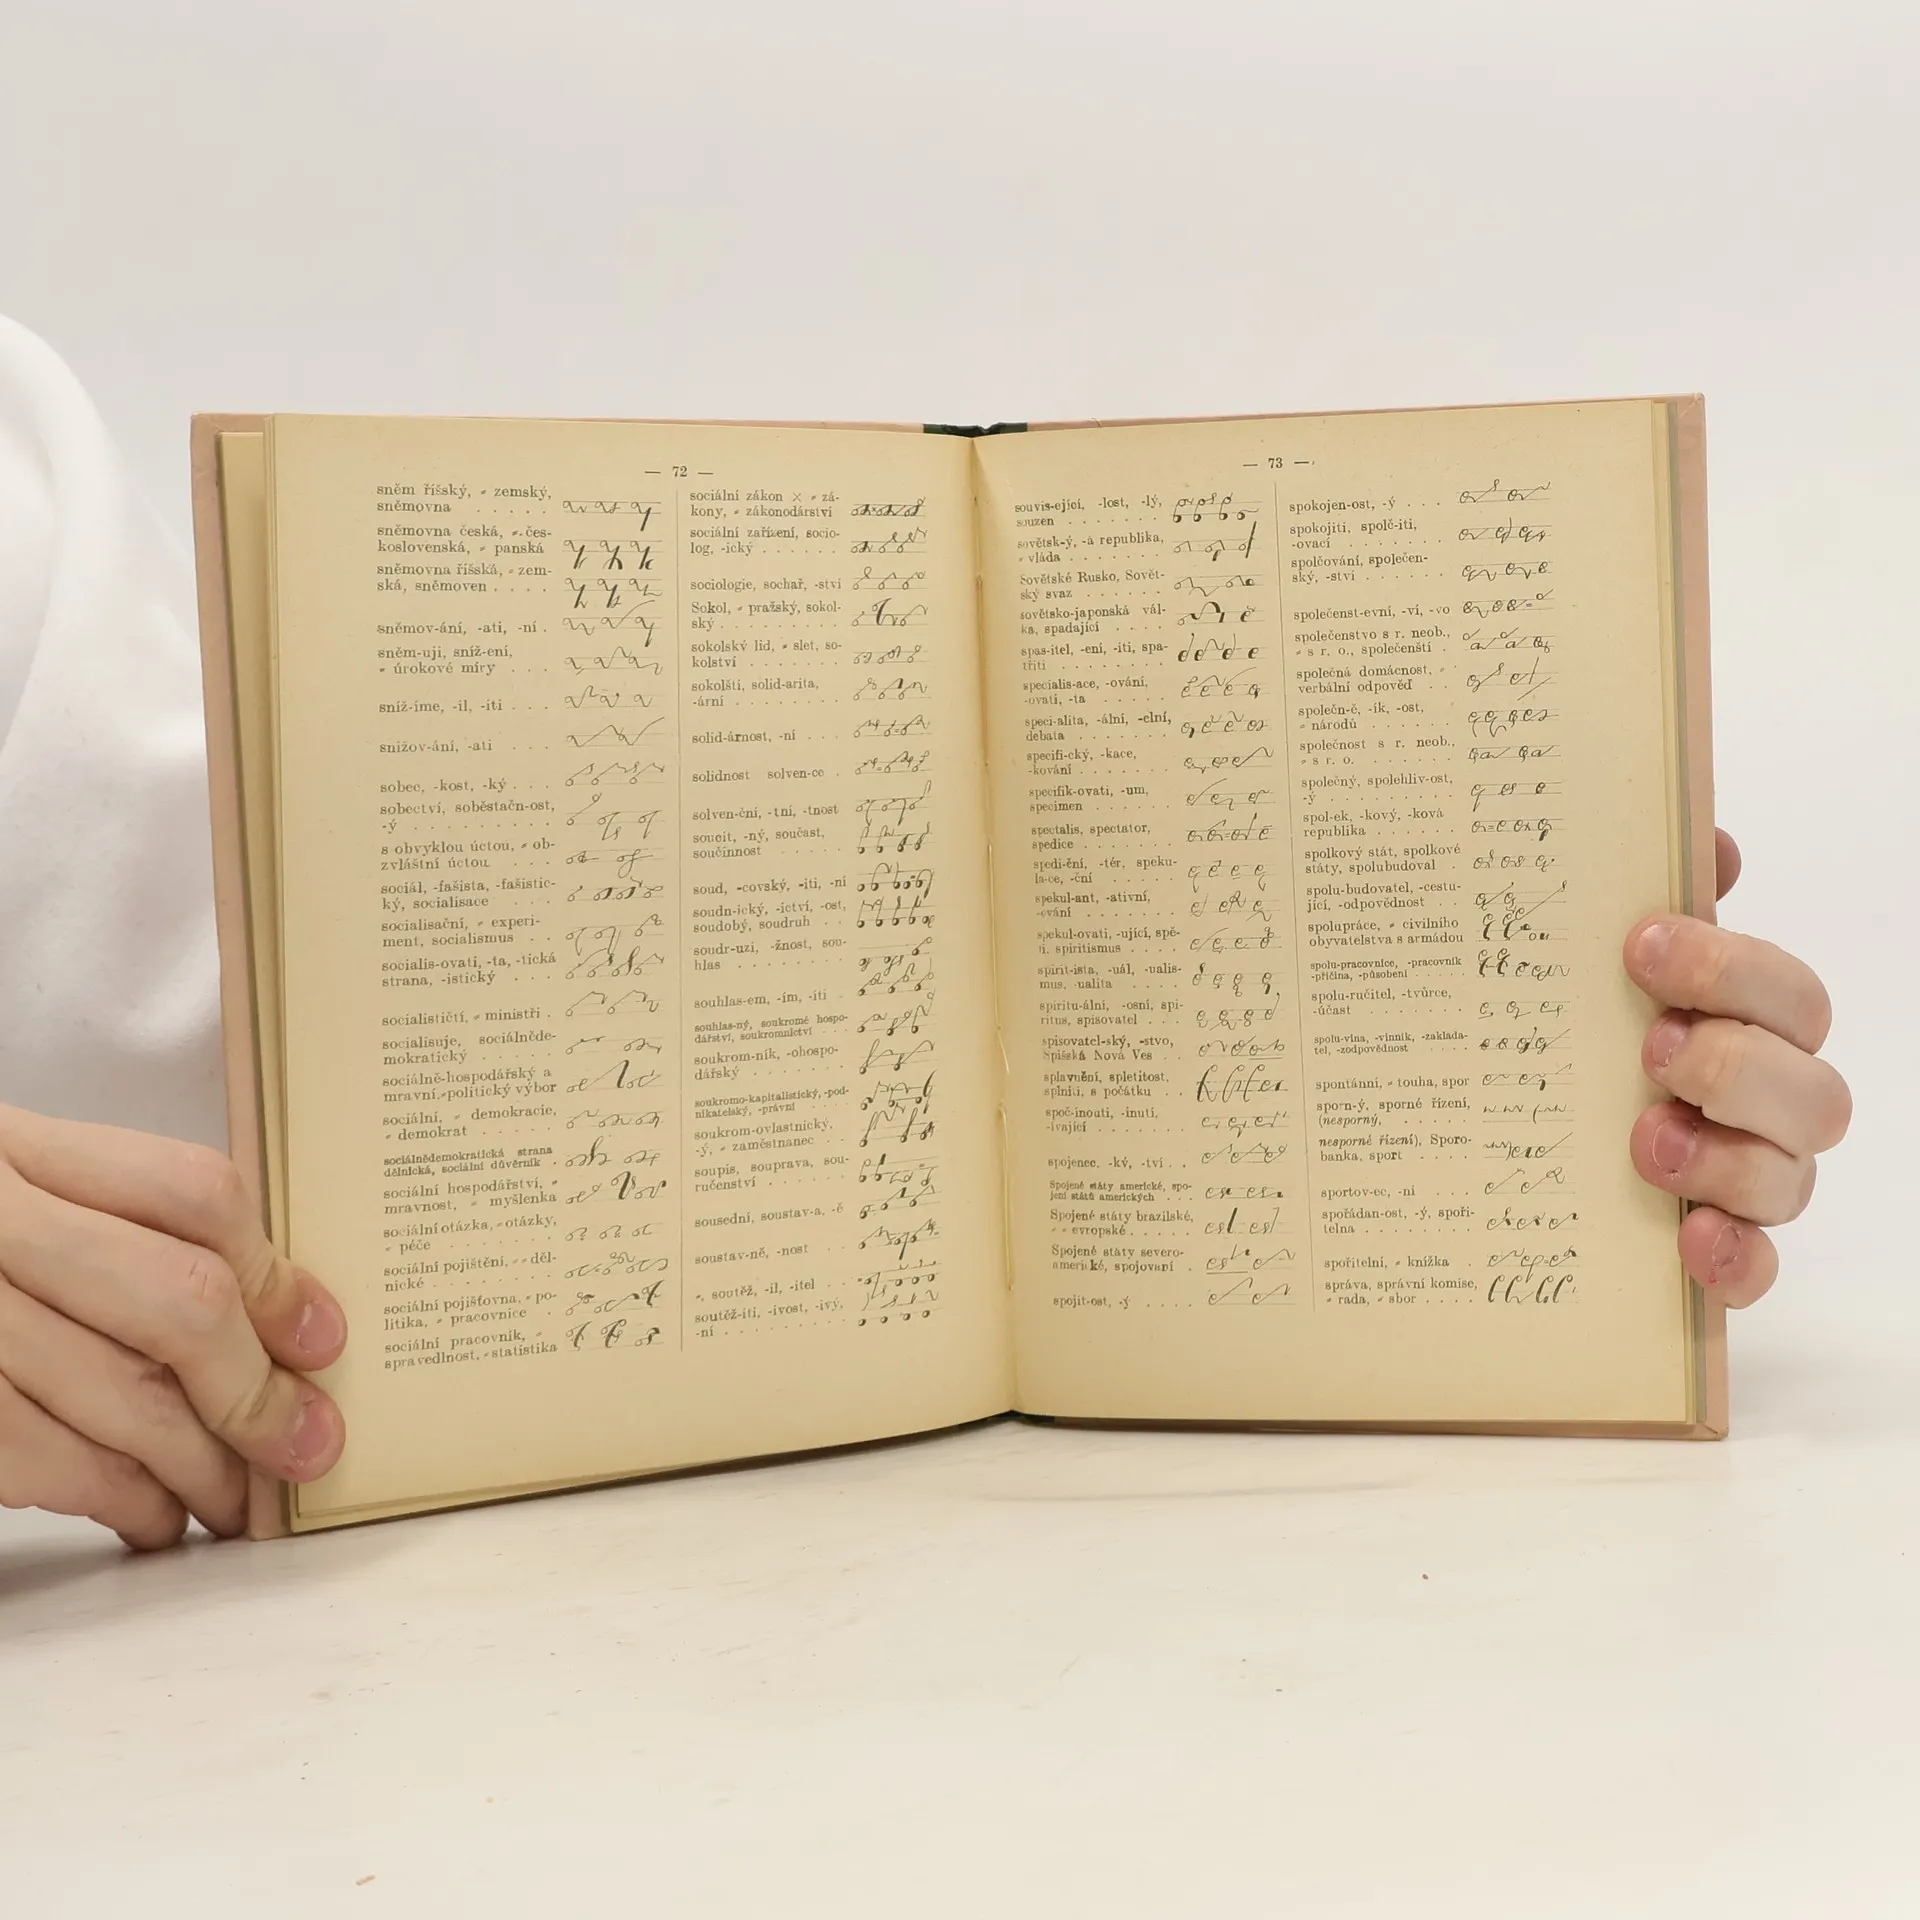 — 72 —
sněm říšský, „ zemský,
sněmovna . . . . .
sněmovna česká, „ čes-
koslovenská, „ panská
sněmovna říšská, „ zem-
ská, sněmoven . . . .
sněmov-ání, -ati, -ní .
sněm-uji, sníž-ení,
„ úrokové míry . . .
sníž-íme, -il, -iti . . .
snižov-ání, -ati . . .
sobec, -kost, -ký . . .
sobectví, soběstačn-ost,
-ý . . . . . . . . .
s obvyklou úctou, „ ob-
zvláštní úctou . . .
sociál, -fašista, -fašistic-
ký, socialisace . . .
socialisační, „ experi-
ment, socialismus . .
socialis-ovati, -ta, -tická
strana, -istický . . .
socialističtí, „ ministři .
socialisuje, sociálněde-
mokratický . . . . .
sociálně-hospodářský a
mravní,„politický výbor
sociální, „ demokracie,
„ demokrat . . . . .
sociálnědemokratická strana
dělnická, sociální důvěrník .
sociální hospodářství, „
mravnost, „ myšlenka
sociální otázka, „ otázky,
„ péče . . . . . . .
sociální pojištění, „ „ děl-
nické . . . . . . . .
sociální pojišťovna, „ po-
litika, „ pracovnice . .
sociální pracovník, „
spravedlnost, „ statistika
sociální zákon × „ zá-
kony, „ zákonodárství
sociální zařízení, socio-
log, -ický . . . . . .
sociologie, sochař, -ství
Sokol, „ pražský, sokol-
ský . . . . . . . . .
sokolský lid, „ slet, so-
kolství . . . . . . .
sokolští, solid-arita,
-ární . . . . . . . .
solid-árnost, -ní . . .
solidnost solven-ce .
solven-ční, -tní, -tnost
soucit, -ný, součast,
součinnost . . . . .
soud, -covský, -iti, -ní
soudn-ický, -ictví, -ost,
soudobý, soudruh . .
soudr-uzi, -žnost, sou-
hlas . . . . . . . .
souhlas-em, -ím, -iti .
souhlas-ný, soukromé hospo-
dářství, soukromnictví . .
soukrom-ník, -ohospo-
dářský . . . . . . .
soukromo-kapitalistický, -pod-
nikatelský, -právní . . . .
soukrom-ovlastnický,
-ý, „ zaměstnanec . .
soupis, souprava, sou-
ručenství . . . . . .
sousední, soustav-a, -ě
soustav-ně, -nost . .
„, soutěž, -il, -itel . .
soutěž-iti, -ivost, -ivý,
-ní . . . . . . . . .
— 73 —
souvis-ející, -lost, -lý,
souzen . . . . . . .
sovětsk-ý, -á republika,
„ vláda . . . . . . .
Sovětské Rusko, Sovět-
ský svaz . . . . . .
sovětsko-japonská vál-
ka, spadající . . . .
spas-itel, -ení, -iti, spa-
třiti . . . . . . . .
specialis-ace, -ování,
-ovati, -ta . . . . .
speci-alita, -ální, -elní,
debata . . . . . . .
specifi-cký, -kace,
-kování . . . . . . .
specifik-ovati, -um,
specimen . . . . . .
spectalis, spectator,
spedice . . . . . . .
spedi-ční, -tér, speku-
la-ce, -ční . . . . .
spekul-ant, -ativní,
-ování . . . . . . .
spekul-ovati, -ující, spě-
ti, spiritismus . . . .
spirit-ista, -uál, -ualis-
mus, -ualita . . . .
spiritu-ální, -osní, spi-
ritus, spisovatel . . .
spisovatel-ský, -stvo,
Spišská Nová Ves . .
splavnění, spletitost,
splniti, s počátku . .
spoč-inouti, -inutí,
-ívající . . . . . . .
spojenec, -ký, -tví . .
Spojené státy americké, spo-
jení států amerických . . .
Spojené státy brazilské,
„ „ evropské . . . . .
Spojené státy severo-
americké, spojovaní .
spojit-ost, -ý . . . .
spokojen-ost, -ý . . .
spokojiti, spolč-iti,
-ovací . . . . . . .
spolčování, společen-
ský, -ství . . . . . .
společenst-evní, -ví, -vo
společenstvo s r. neob.,
„ s r. o., společenští .
společná domácnost, „
verbální odpověď . .
společn-ě, -ík, -ost,
„ národů . . . . . .
společnost s r. neob.,
„ s r. o. . . . . . .
společný, spolehliv-ost,
-ý . . . . . . . . .
spol-ek, -kový, -ková
republika . . . . . .
spolkový stát, spolkové
státy, spolubudoval .
spolu-budovatel, -cestu-
jící, -odpovědnost . .
spolupráce, „ civilního
obyvatelstva s armádou
spolu-pracovnice, -pracovník
-příčina, -působení . . . . .
spolu-ručitel, -tvůrce,
-účast . . . . . . .
spolu-vina, -vinník, -zaklada-
tel, -zodpovědnost . . . .
spontánní, „ touha, spor
sporn-ý, sporné řízení,
(nesporný,
nesporné řízení), Sporo-
banka, sport . . . .
sportov-ec, -ní . . .
spořádan-ost, -ý, spoři-
telna . . . . . . . .
spořitelní, „ knížka .
správa, správní komise,
„ rada, „ sbor . . . .